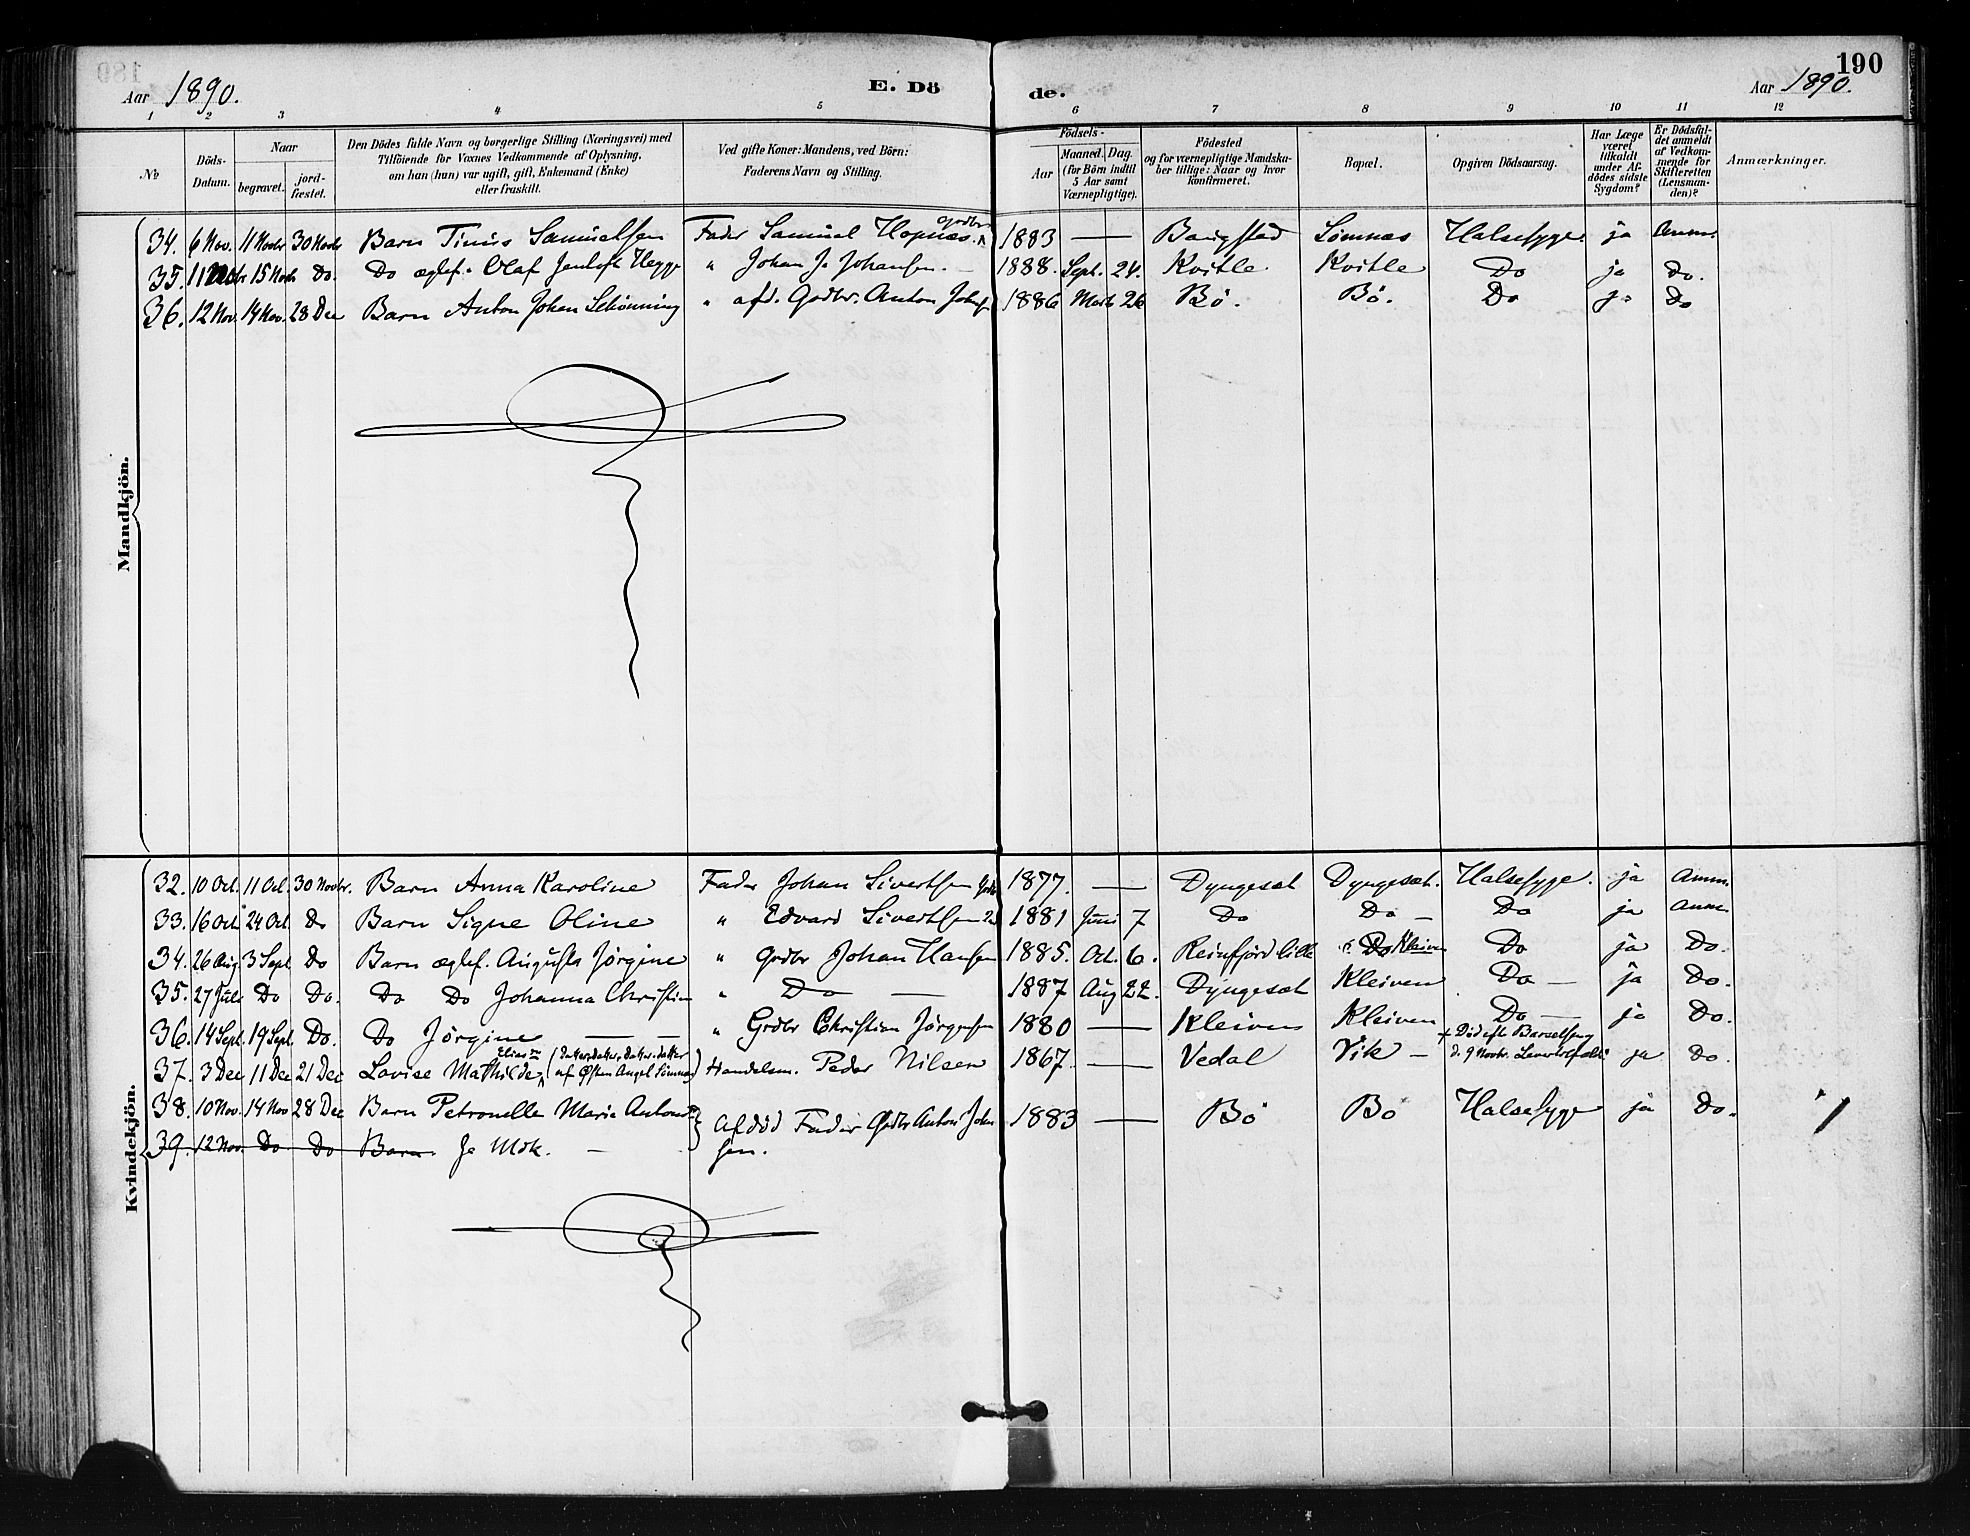 Aar 1890.
E. Dö
de.
190
Aar 1890.
1 2 3 4 5 6 7 8 9 10 11 12
№
Döds-Datum.
Naar
begravet.
jord-fæstet.
Den Dödes fulde Navn og borgerlige Stilling (Næringsvei) med
Tilföiende for Voxnes Vedkommende af Oplysning,
om han (hun) var ugift, gift, Enkemand (Enke)
eller fraskilt.
Ved gifte Koner: Mandens, ved Börn:
Faderens Navn og Stilling.
Födsels-
Aar
Maaned. Dag.
(for Börn indtil
5 Aar samt
Værnepligtige).
Födested
og for værnepligtige Mandska-
ber tillige: Naar og hvor
konfirmeret.
Bopæl.
Opgiven Dödsaarsag.
Har Læge
været
tilkaldt
under Af-
dödes sidste
Sygdom?
Er Dödsfal-
det anmeldt
af Vedkom-
mende for
Skifteretten
(Lensman-
den)?
Anmærkninger.
Mandkjön.
34. 6 Nov. 11 Novbr 30 Novbr Barn Tinius Samuelsen Fader Samuel Hopnæs Grdbr 1883 — Bangstad Sömnæs Halsesyge ja Anm.
35. 11 Novbr 15 Novbr Do. Do ægtef. Olaf Hegge " Johan J. Johansen. — 1888. Sept. 24. Kvitle Kvitle Do ja Do.
36. 12 Nov. 14 Nov. 28 Dec Barn Anton Johan Schönning " afd. Grdbr. Anton Johnsen 1886 Marts 26 Bö. Bö. Do ja Do
Kvindekjön.
32. 10 Oct. 11 Oct. 30 Novbr. Barn Anna Karoline Fader Johan Sivertsen Grdb 1877. — Dyngesæt Dyngesæt. Halsesyge. ja Anm.
33. 16 Oct. 24 Oct. Do Barn Signe Oline " Edvard Sivertsen 1881 Juni 7 Do Do — Do ja Anm.
34. 26 Aug 3 Sept. Do Barn ægtef. Augusta Jörgine " Grdbr Johan Hansen 1885. Oct. 6. Reinfjord lille Do Kleiven Do ja Do.
35. 27 Juli Do Do. Do Do Johanna Christin " Do — 1887 Aug 22. Dyngesæt Kleiven Do — ja Do.
36. 14 Sept. 19 Sept. Do. Do Jörgine — " Grdbr Christian Jörgensen 1880 — Kleiven Kleiven Do — ja Do.
37. 3 Dec 11 Dec 21 Dec Lovise Mathilde (Datterdatters datter af Östen Angel Sömnæs) Handelsm. Peder Nilsen 1867. — Vedal Vik — Död eft. Barselseng d. 9 Novbr. ja Do.
38. 10 Nov. 14 Nov 28 Dec Barn Petronelle Maria Antons } Afdöd Fader Grdbr Anton John 1883 — Bö Bö Halsesyge ja Do.
39. 12 Nov. Do Do Barn. Je Mdk. — sen.